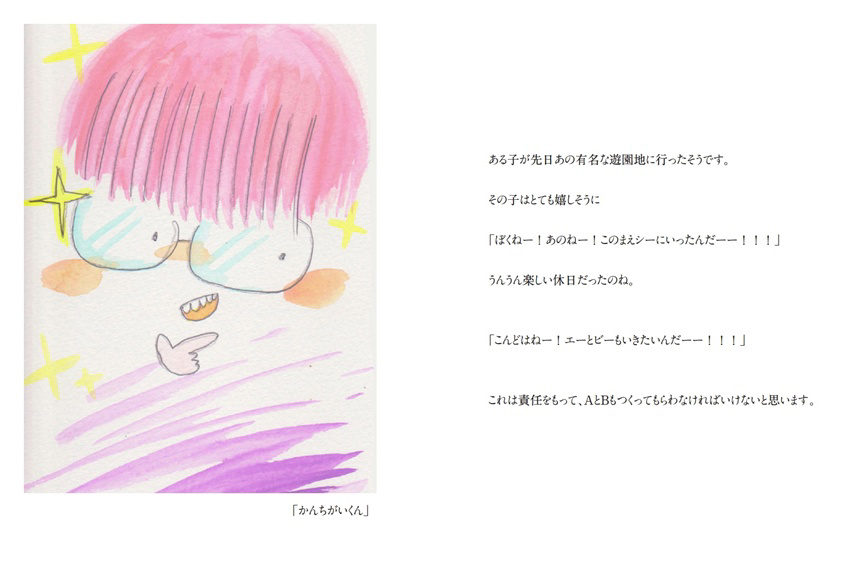 ある子が先日あの有名な遊園地に行ったそうです。
その子はとても嬉しそうに
「ぼくねー！あのねー！このまえシーにいったんだーー！！！」
うんうん楽しい休日だったのね。
「こんどはねー！エーとビーもいきたいんだーー！！！」
これは責任をもって、AとBもつくってもらわなければいけないと思います。
「かんちがいくん」